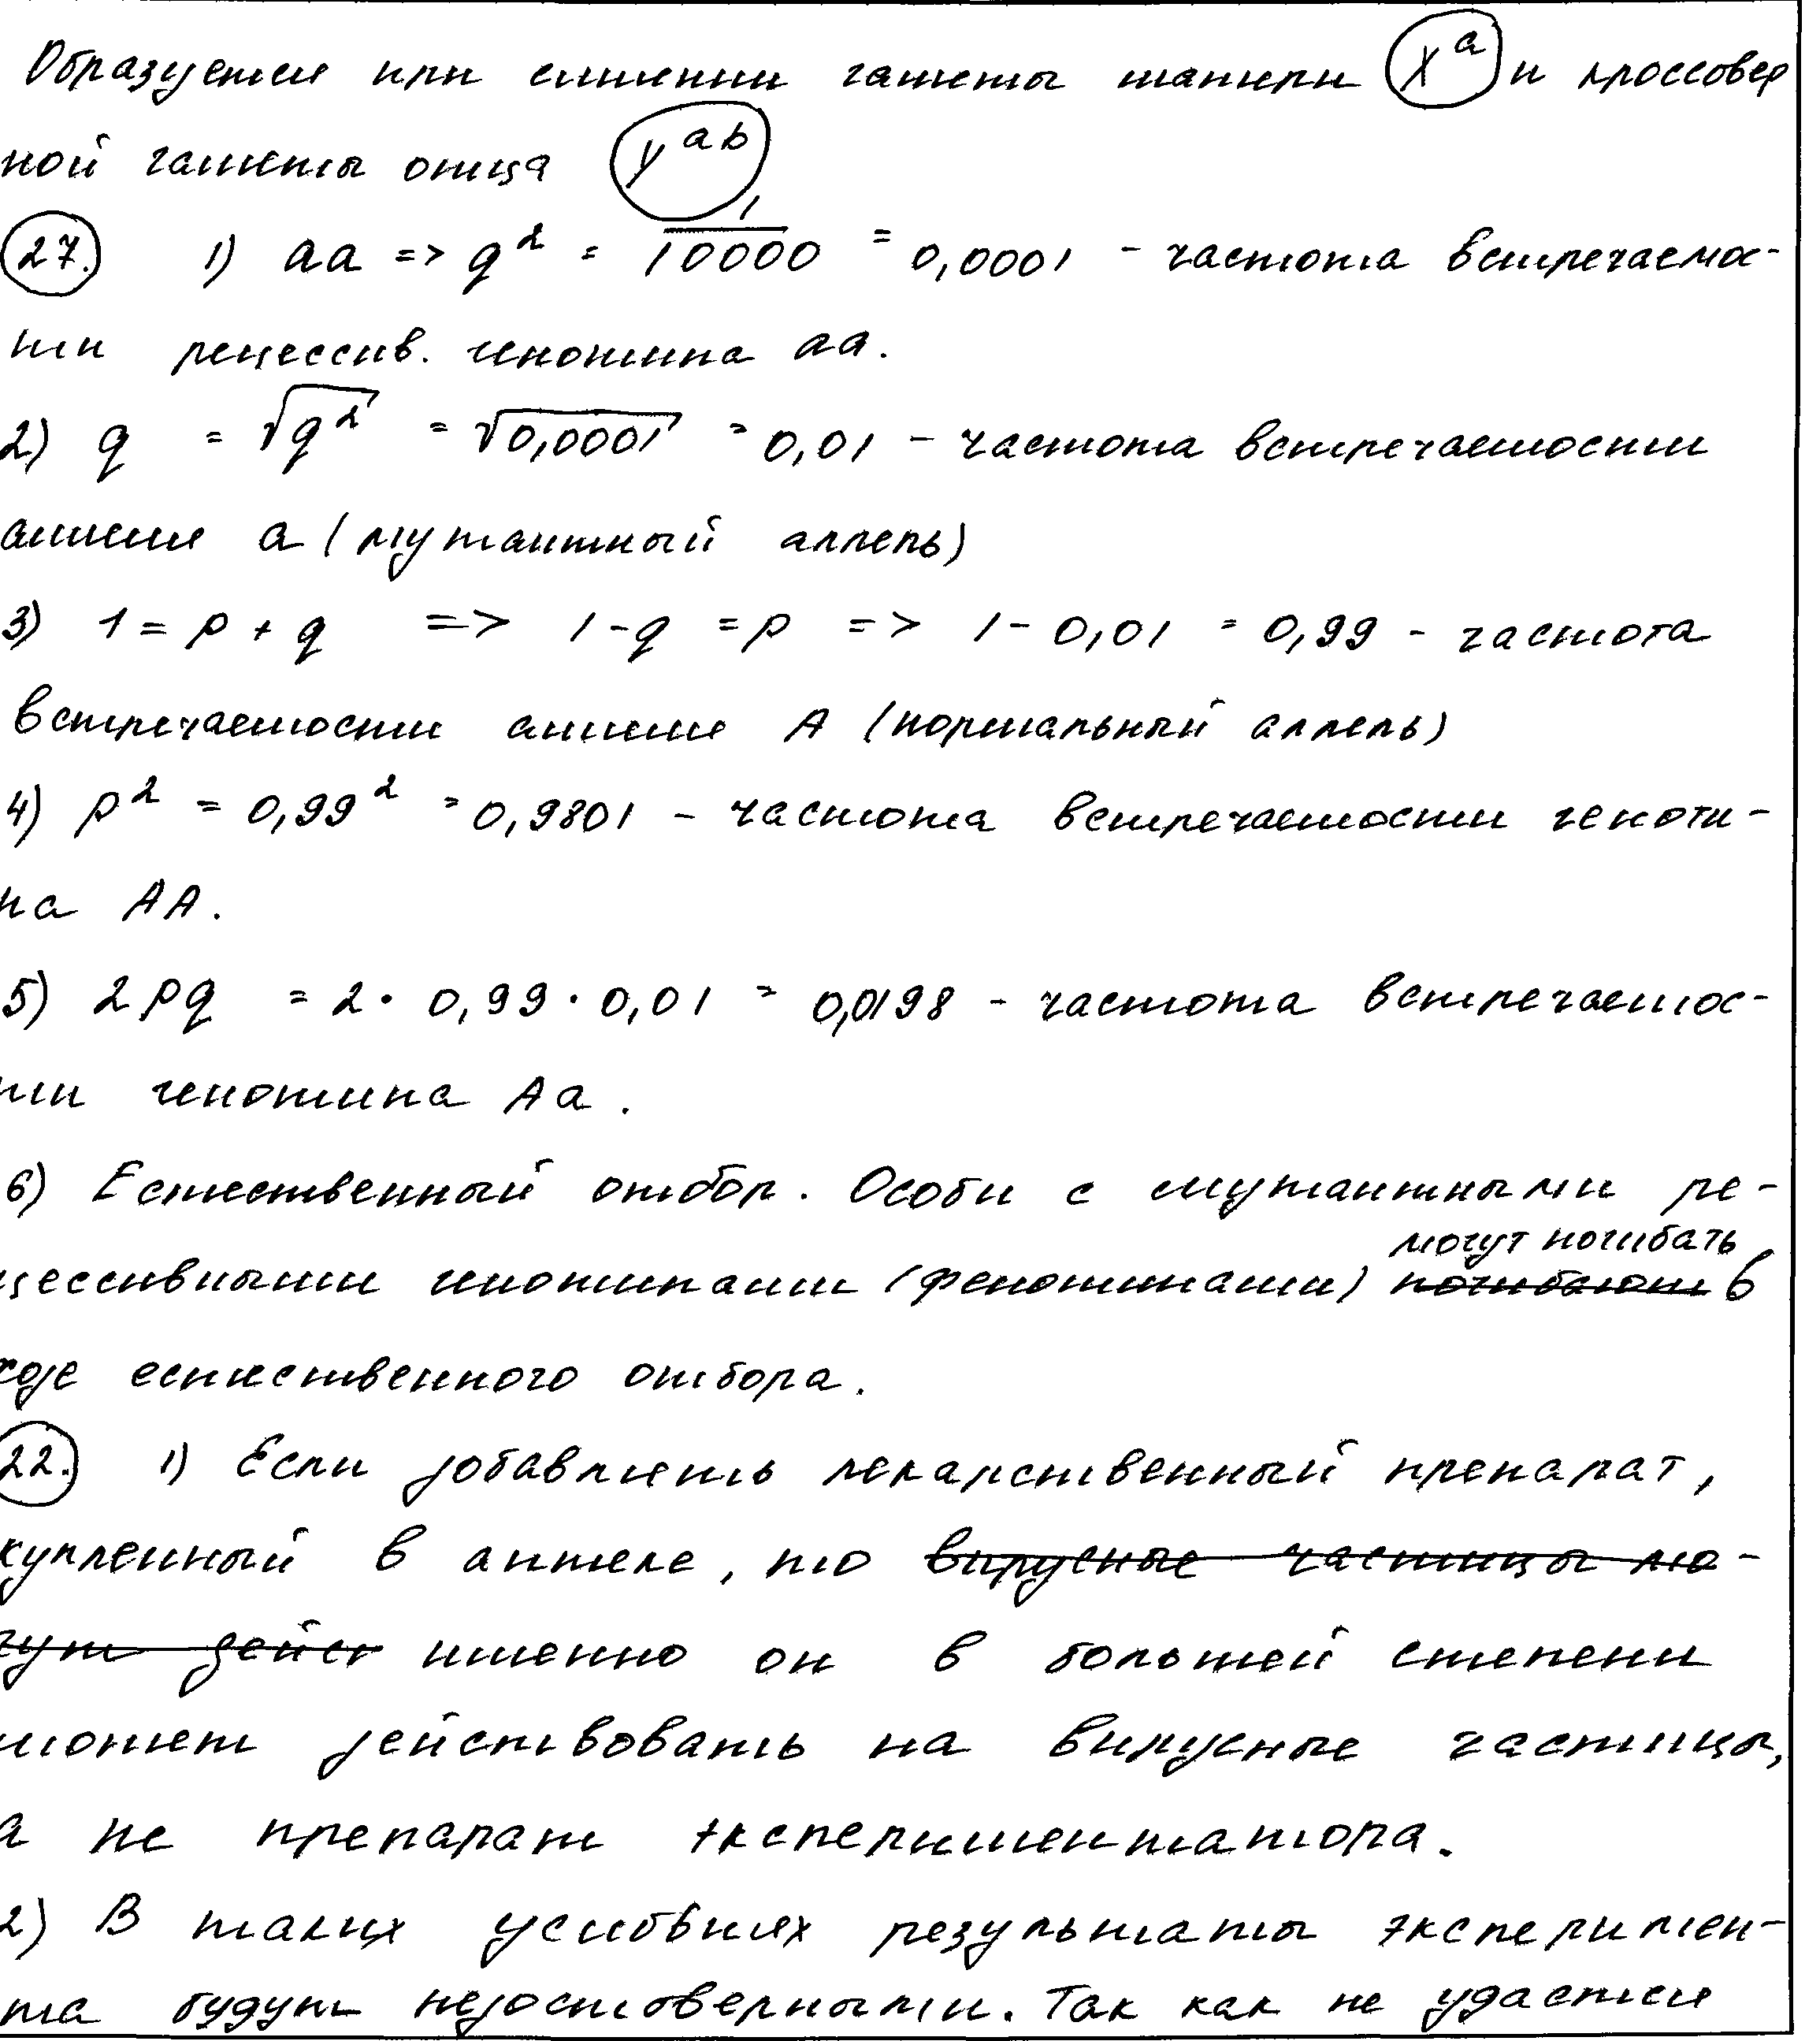 Образуется при слиянии гаметы матери X^a и кроссовер
ной гаметы отца Y^ab
27. 1) aa => q² = 1/10000 = 0,0001 - частота встречаемос-
ти рецессив. генотипа aa.
2) q = √q² = √0,0001 = 0,01 - частота встречаемости
аллеля a (мутантный аллель)
3) 1 = p + q => 1 - q = p => 1 - 0,01 = 0,99 - частота
встречаемости аллеля A (нормальный аллель)
4) p² = 0,99² = 0,9801 - частота встречаемости геноти-
па AA.
5) 2pq = 2 · 0,99 · 0,01 = 0,0198 - частота встречаемос-
ти генотипа Aa.
6) Естественный отбор. Особи с мутантными ре-
могут погибать
цессивными генотипами (фенотипами) погибают в
ходе естественного отбора.
22. 1) Если добавлять лекарственный препарат,
купленный в аптеке, то вирусные частицы мо-
гут дейст именно он в большей степени
может действовать на вирусные частицы,
а не препарат экспериментатора.
2) В таких условиях результаты эксперимен-
та будут недостоверными. Так как не удастся